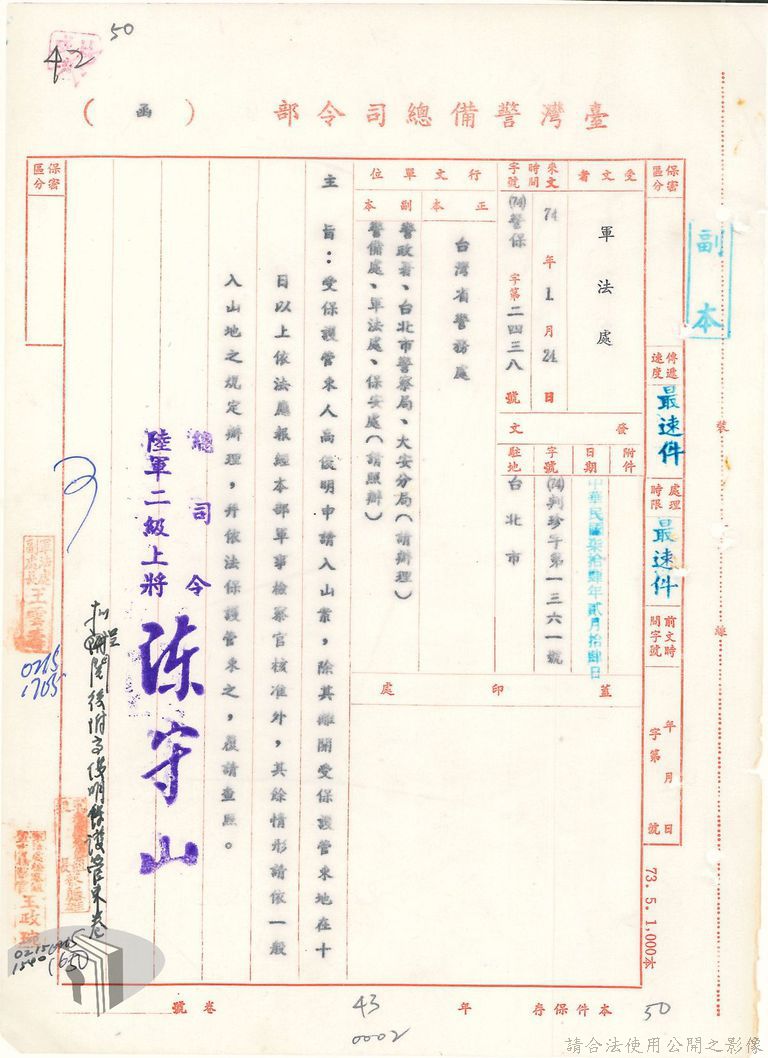 50
42
臺灣警備總司令部（函）
副本
保密區分
傳遞速度
最速件
處理時限
最速件
前文時間字號
年月日
字第號
73.5.1,000本
受文者
軍法處
來文時間字號
74年1月24日
(74)警保字第二四三八號
行文單位
正本
台灣省警務處
副本
警政署、台北市警察局、大安分局（請辦理）
警備處、軍法處、保安處（請照辦）
發文
附件
日期
中華民國柒拾肆年貳月拾肆日
字號
(74)判珍字第一三六一號
駐地
台北市
蓋印處
主旨：受保護管束人高俊明申請入山案，除其離開受保護管束地在十
日以上依法應報經本部軍事檢察官核准外，其餘情形請依一般
入山地之規定辦理，并依法保護管束之，復請查照。
總司令
陸軍二級上將
陳守山
保密區分
軍法處
副處長
王雲
0215
1705
閱後附高俊明保護管束卷
王政琬
0215
1540
1630
裝
線
本件保存
年
43
卷號
50
0002
請合法使用公開之影像